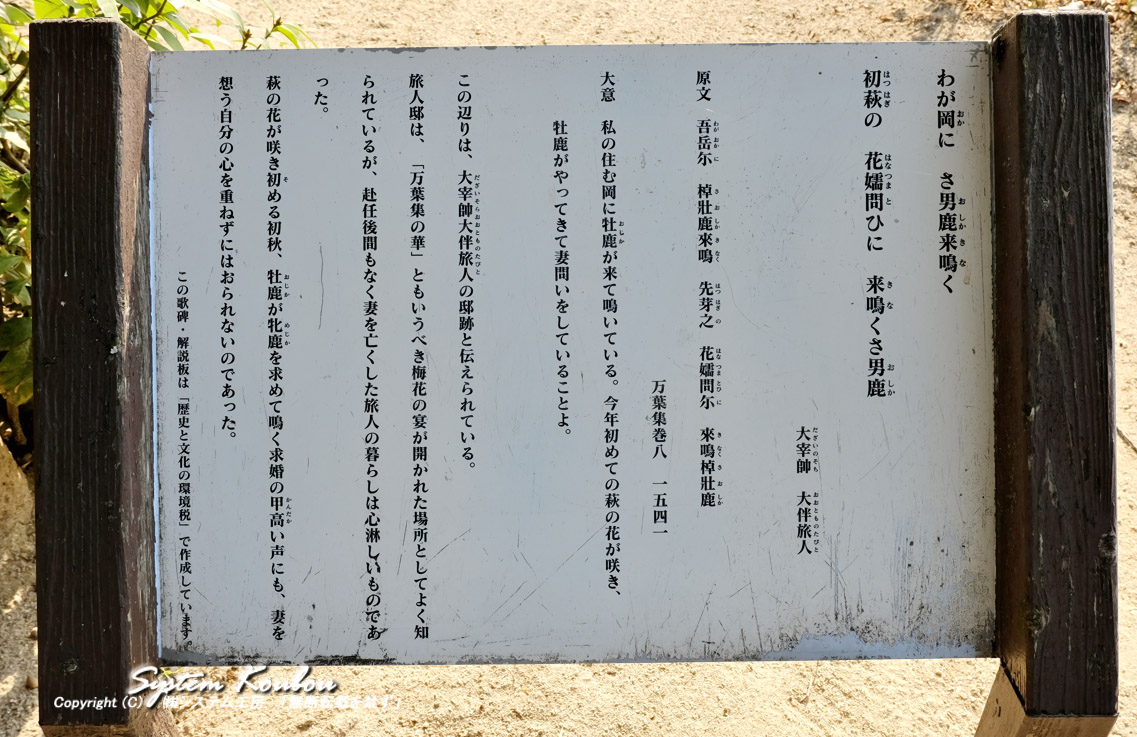 わが岡に　さ男鹿来鳴く
初萩の　花嬬問ひに　来鳴くさ男鹿
大宰帥　大伴旅人
原文　吾岳尓　棹壯鹿來鳴　先芽之　花嬬問尓　來鳴棹壯鹿
万葉集巻八　一五四一
大意　私の住む岡に牡鹿が来て鳴いている。今年初めての萩の花が咲き、
牡鹿がやってきて妻問いをしていることよ。
この辺りは、大宰帥大伴旅人の邸跡と伝えられている。
旅人邸は、「万葉集の華」ともいうべき梅花の宴が開かれた場所としてよく知
られているが、赴任後間もなく妻を亡くした旅人の暮らしは心淋しいものであ
った。
萩の花が咲き初める初秋、牡鹿が牝鹿を求めて鳴く求婚の甲高い声にも、妻を
想う自分の心を重ねずにはおられないのであった。
この歌碑・解説板は「歴史と文化の環境税」で作成しています。
System Koubou
Copyright (C) ㈱システム工房 「無断転載を禁ず」